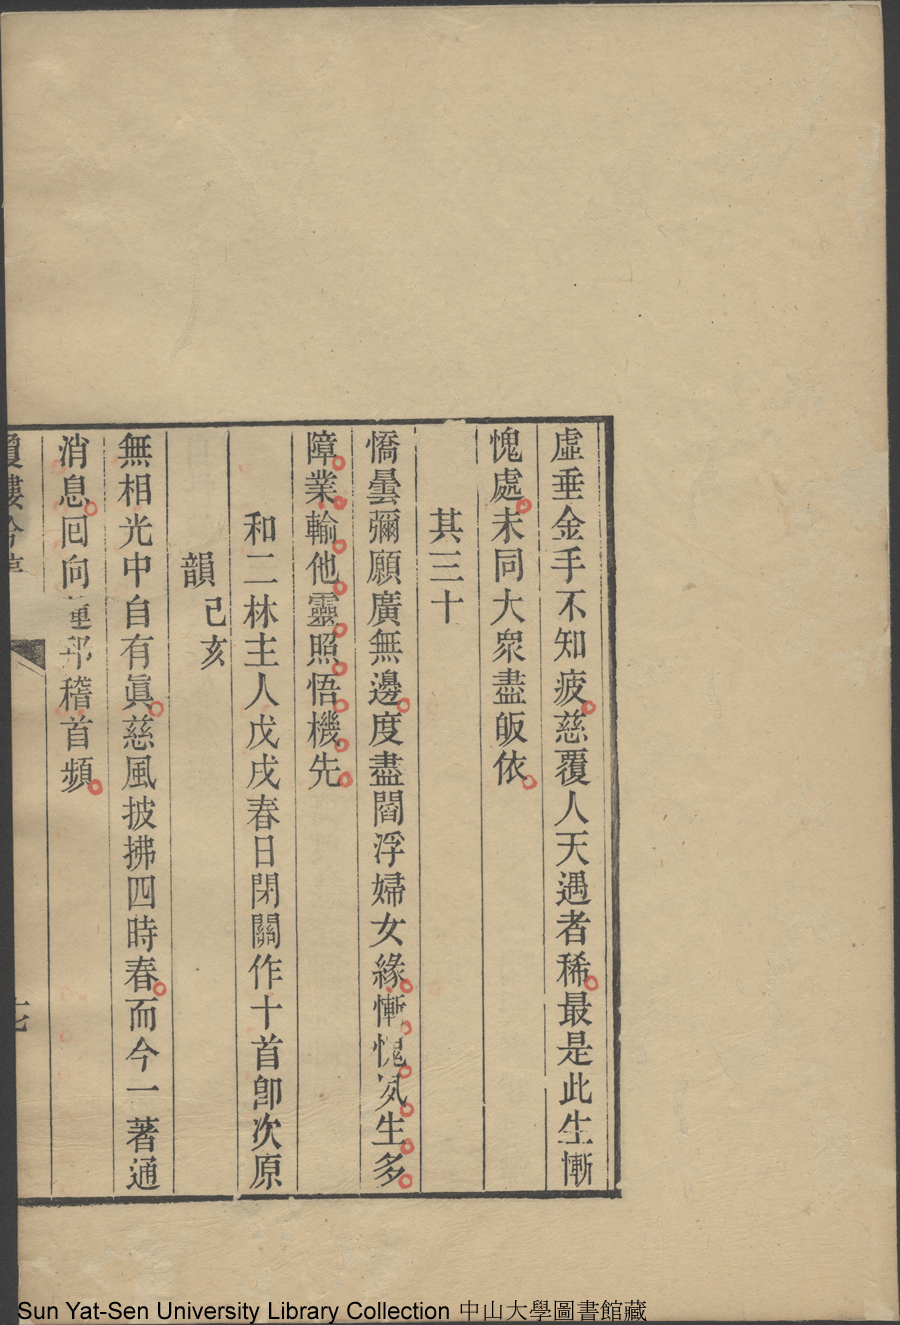 虛垂金手不知疲慈覆人天遇者稀最是此生慚
愧處未同大衆盡皈依
其三十
憍曇彌願廣無邊度盡閻浮婦女緣慚愧夙生多
障業輸他靈照悟機先
和二林主人戊戌春日閉關作十首卽次原
韻 己亥
無相光中自有眞慈風披拂四時春而今一著通
消息囘向蓮邦稽首頻
Sun Yat-Sen University Library Collection 中山大學圖書館藏